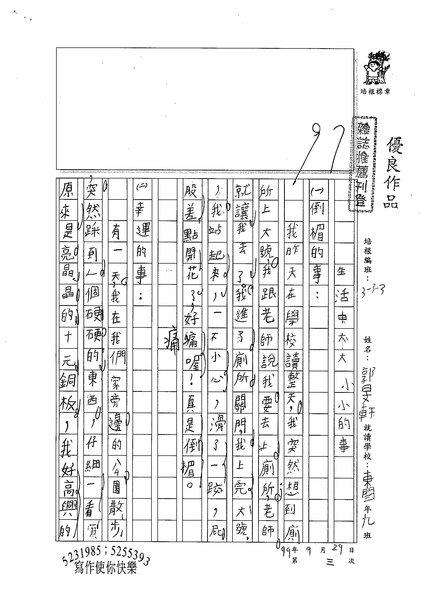 培根標章
優良作品
雜誌推薦刊登
97
培根編班：3-1-3 姓名：郭旻軒 就讀學校：東園 年九班
99年9月29日 第三次
生活中大大小小的事
(一)倒楣的事：
我昨天在學校讀整天，我突然想到廁
所上大號，我跟老師說我要去上廁所，老師
就讓我去了，我進了廁所關門，我上完大號
，我站起來，一不小心，滑了一跤，屁
股差點開花了，好痛喔！真是倒楣。
痛
(二)幸運的事：
有一天，我在我們家旁邊的公園散步，
突然踩到一個硬硬的東西，仔細一看，
原來是亮晶晶的十元銅板，我好高興的
5231985；5255393
寫作使你快樂